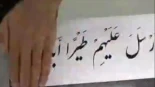 رْسَلَ عَلَيْهِمْ طَيْرًا أَ